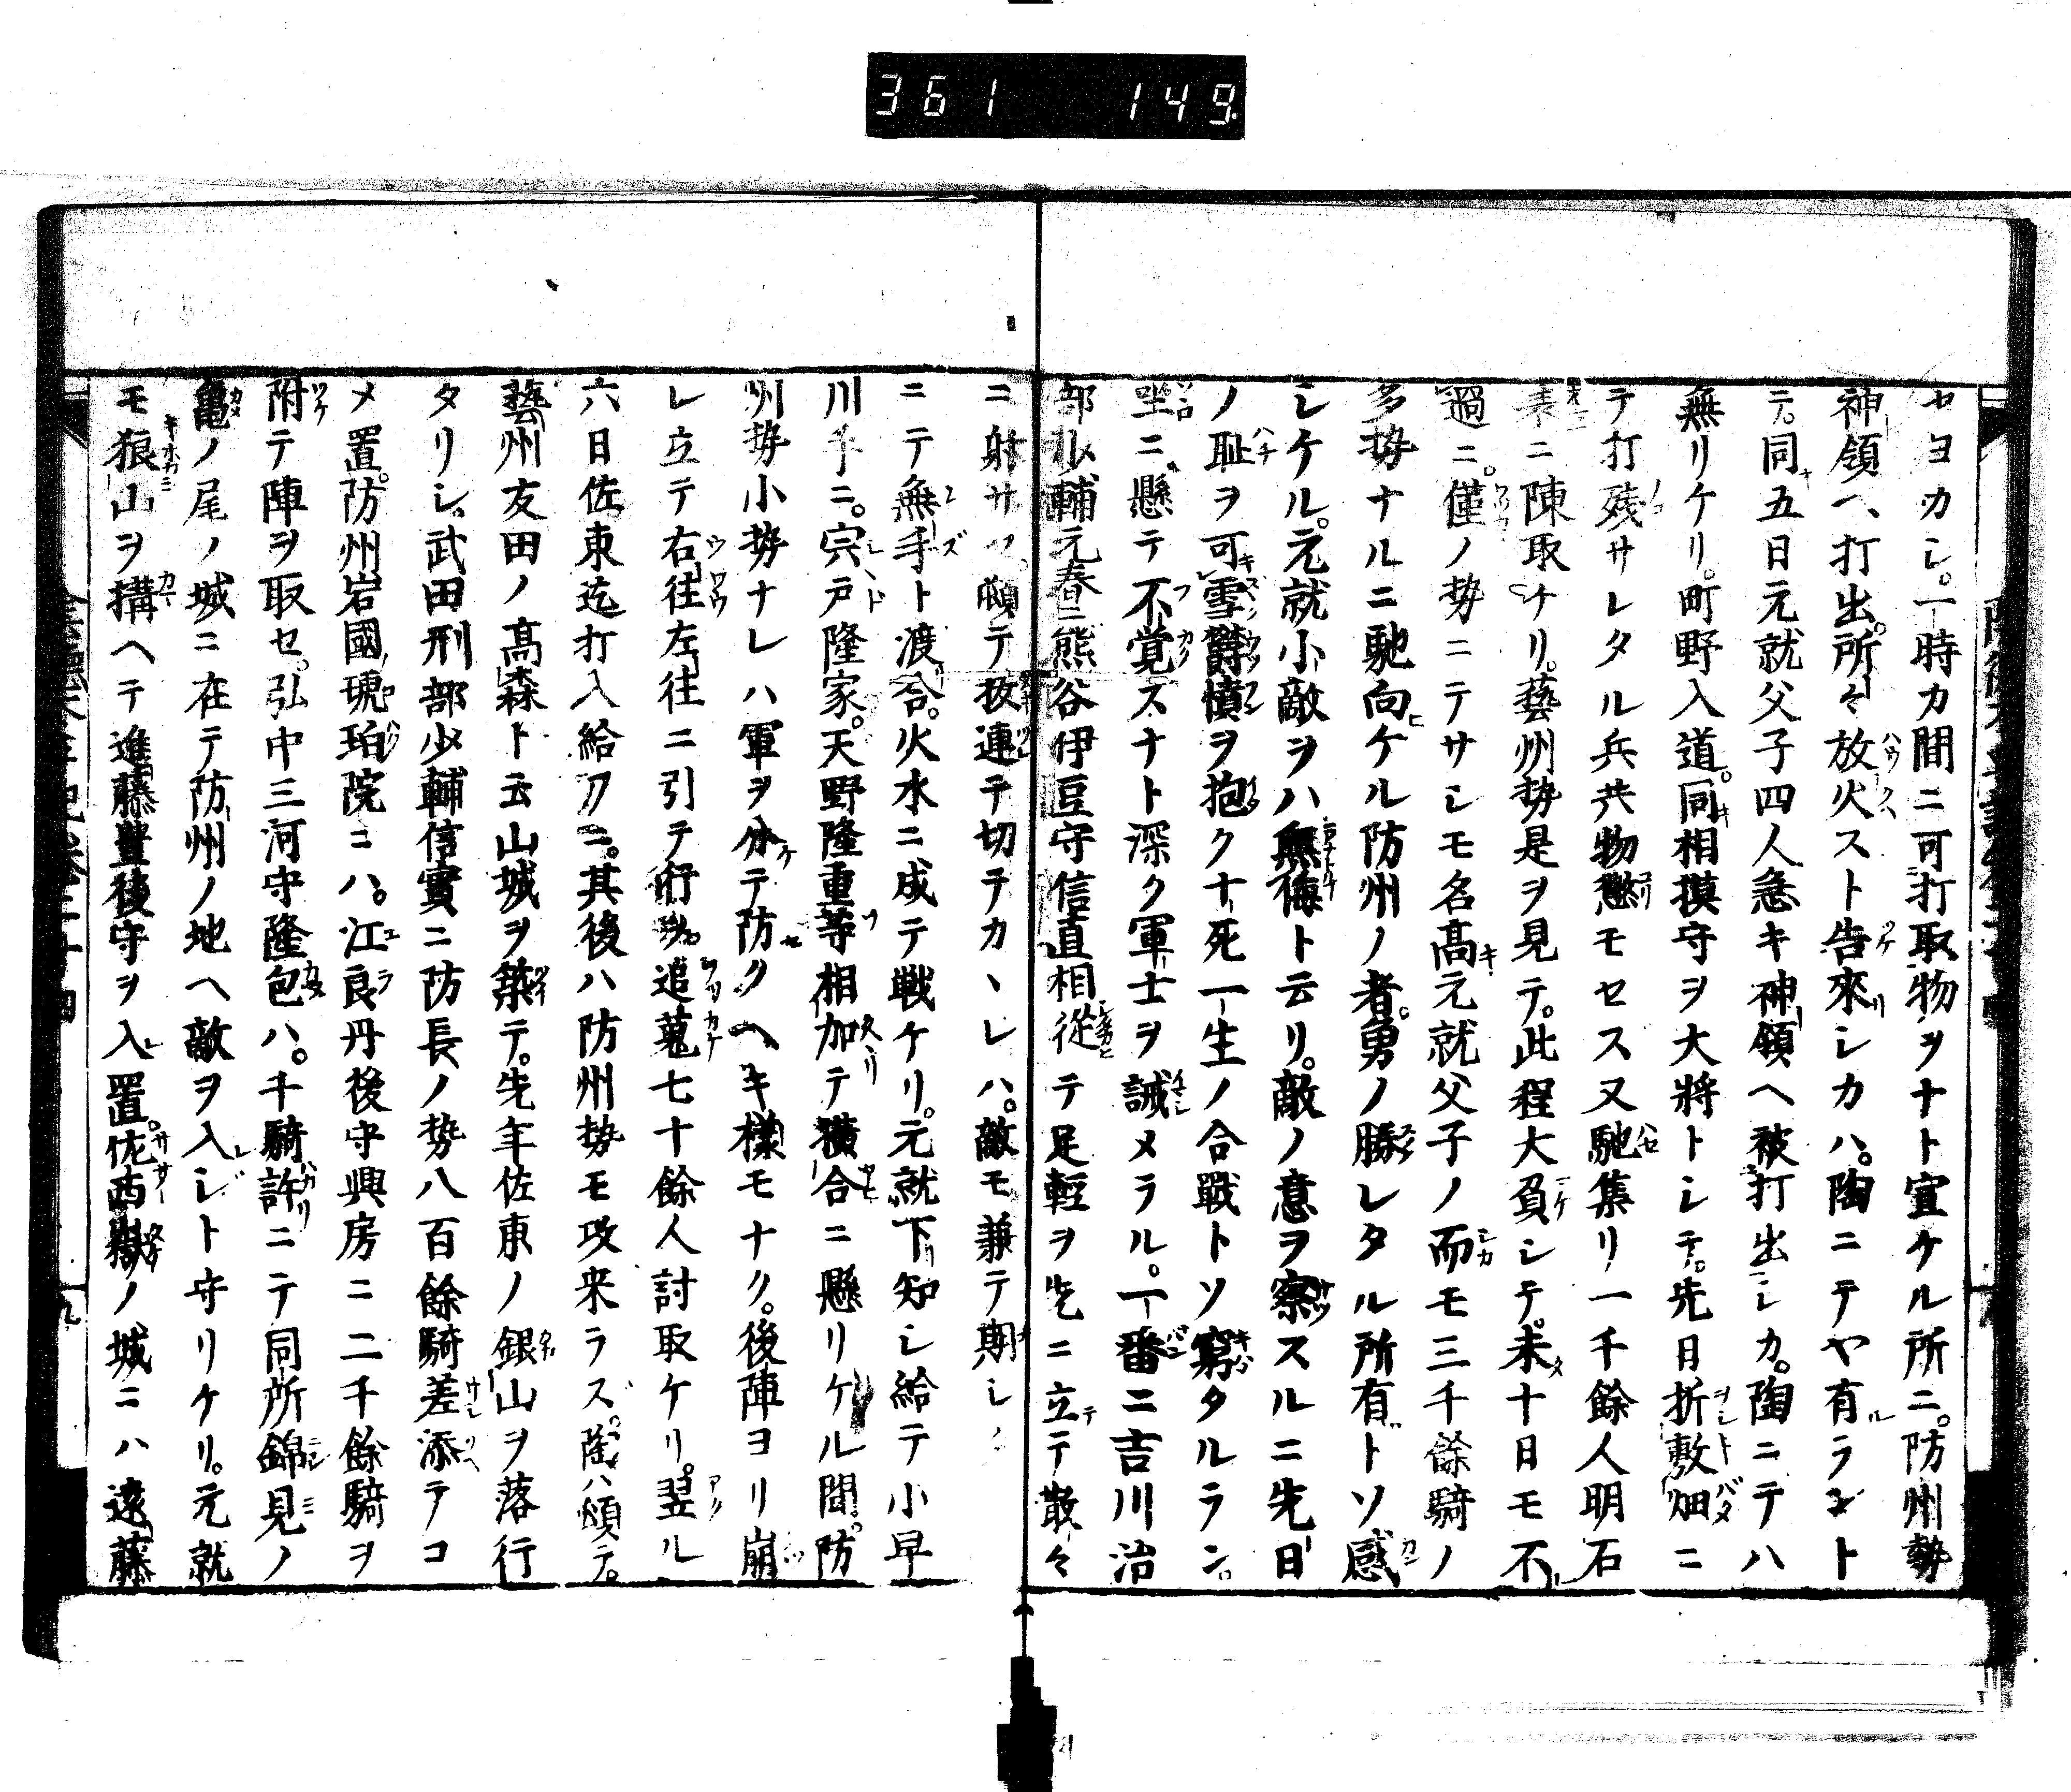 361 149
セヨカシ。一時カ間ニ可打取物ヲナト宣ケル所ニ。防州勢
神領ヘ打出。所々放火スト告來シカハ。陶ニテヤ有ラント
テ。同五日元就父子四人急キ神領ヘ被打出シカ。陶ニテハ
無リケリ。町野入道。同相摸守ヲ大將トシテ。先日折敷畑ニ
テ打残サレタル兵共物懲モセス又馳集リ一千餘人明石
表ニ陳取ケリ。藝州勢是ヲ見テ。此程大負シテ。未十日モ不
過ニ。僅ノ勢ニテサシモ名高元就父子ノ而モ三千餘騎ノ
多勢ナルニ馳向ケル防州ノ者。勇ノ勝レタル所有トソ感
シケル。元就小敵ヲハ無侮ト云リ。敵ノ意ヲ察スルニ先日
ノ耻ヲ可雪欝憤ヲ抱ク十死一生ノ合戰トソ窮タルラン。
坐ニ懸テ不覚スナト深ク軍士ヲ誡メラル。一番ニ吉川治
部少輔元春ニ熊谷伊豆守信直相從テ足輕ヲ先ニ立テ散々
ニ射サセ。頓テ抜連テ切テカヽレハ。敵モ兼テ期シ
ニテ無手ト渡合。火水ニ成テ戦ケリ。元就下知シ給テ小早
川手ニ。宍戸隆家。天野隆重等相加テ横合ニ懸リケル間。防
州勢小勢ナレハ軍ヲ分テ防クヘキ様モナク。後陣ヨリ崩
レ立テ右往左往ニ引テ行ヲ。追蒐七十餘人討取ケリ。翌ル
六日佐東迄打入給フニ。其後ハ防州勢モ攻来ラズ。陶ハ頓テ。
藝州友田ノ高森ト云山城ヲ築テ。先年佐東ノ銀山ヲ落行
タリシ。武田刑部少輔信實ニ防長ノ勢八百餘騎差添テコ
メ置。防州岩國琥珀院ニハ。江良丹後守興房ニ二千餘騎ヲ
附テ陣ヲ取セ。弘中三河守隆包ハ。千騎許ニテ同所錦見ノ
亀ノ尾ノ城ニ在テ防州ノ地ヘ敵ヲ入シト守リケリ。元就
モ狼山ヲ構ヘテ進藤豊後守ヲ入置。佐西嶽ノ城ニハ遠藤
九